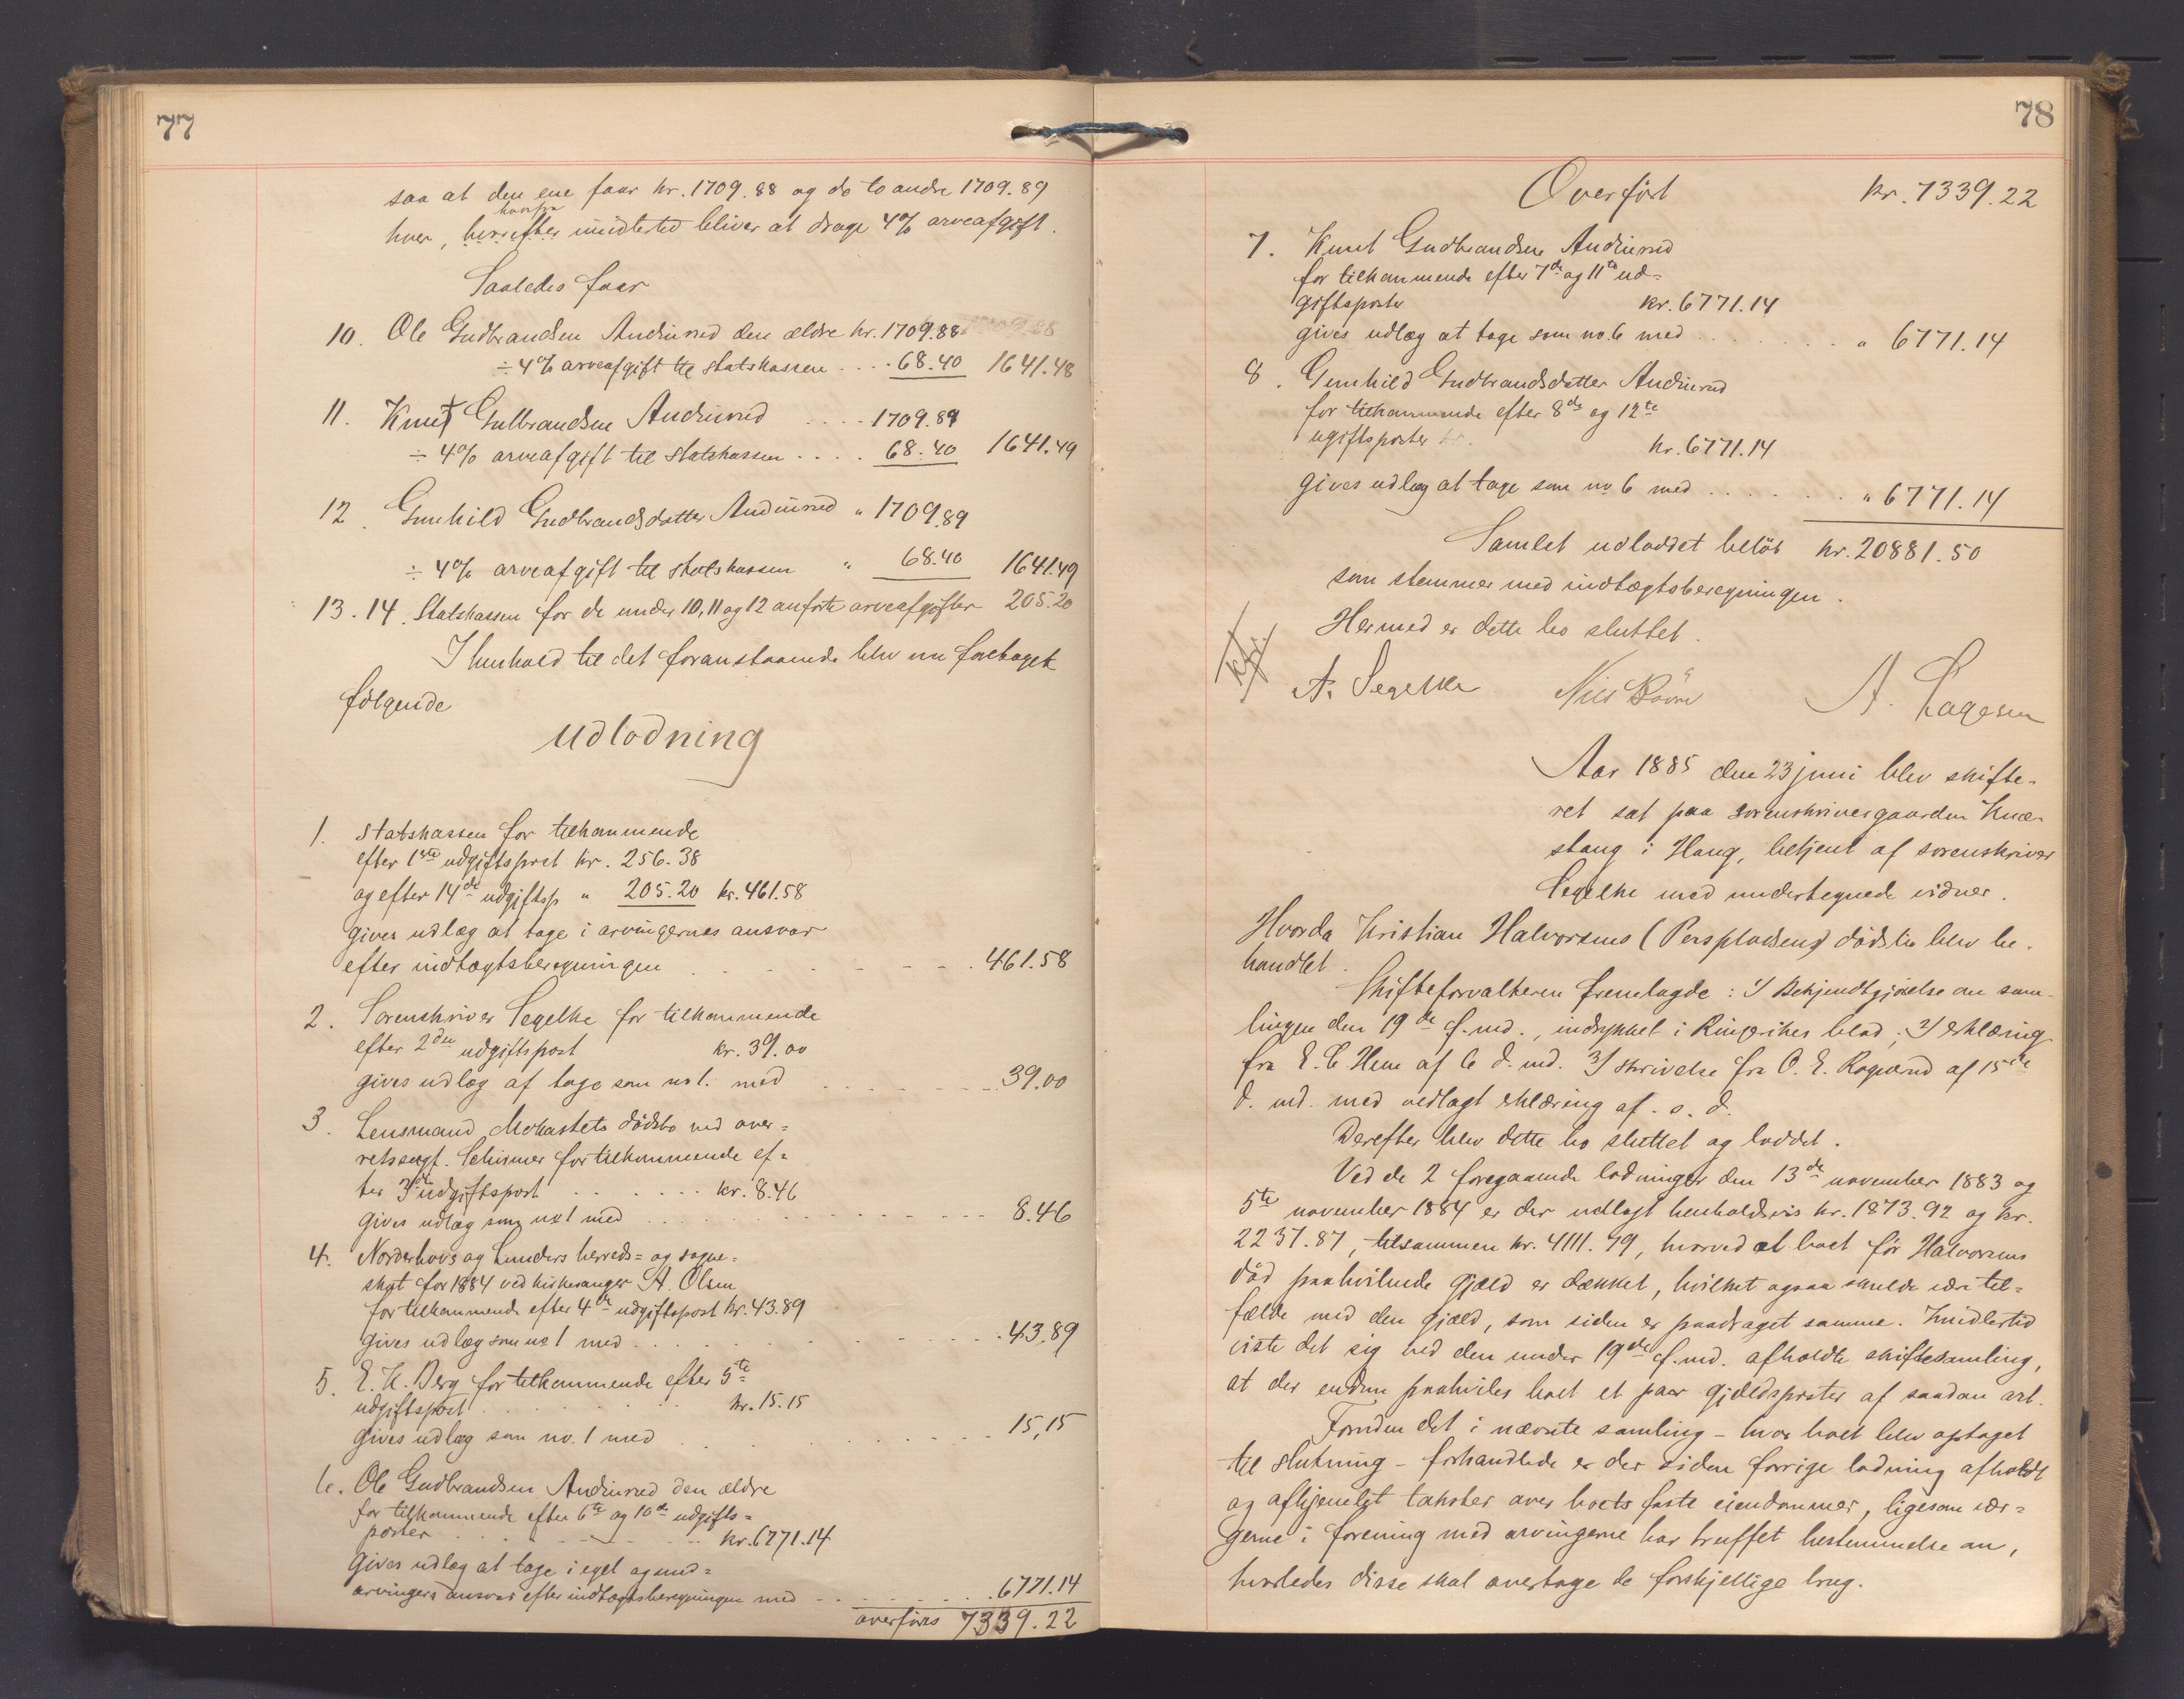 77
saa at den ene faar kr. 1709.88 og de to andre 1709.89
hvorfra
hver, herefter imidlertid bliver at drage 4% arveafgift.
Saaledes faar
10. Ole Gudbrandsen Andiurud den ældre kr. 1709.88
÷ 4% arveafgift til statskassen .... 68.40 1641.48
11. Knut Gulbrandsen Andiurud .... 1709.89
÷ 4% arveafgift til statskassen .... 68.40 1641.49
12. Gunhild Gudbrandsdatter Andiurud " 1709.89
÷ 4% arveafgift til statskassen " 68.40 1641.49
13. 14. Statskassen for de under 10, 11 og 12 anførte arveafgifter 205.20
I henhold til det foranstaaende blev nu foretaget
følgende
udlodning
1. Statskassen for tilkommende
efter 1ste udgiftspost kr. 256.38
og efter 14de udgiftsp " 205.20 kr. 461.58
gives udlæg at tage i arvingernes ansvar
efter indtægtsberegningen . . . . . . . 461.58
2. Sorenskriver Segelke for tilkommende
efter 2den udgiftspost kr. 39.00
gives udlæg af tage som no 1. med . . . . . . . 39.00
3. Lensmand Mohastets dødsbo ved over=
retssagf. Schirmer for tilkommende ef=
ter 3die udgiftspost . . . . . . kr. 8.46
gives udlæg som no 1 med . . . . . . . 8.46
4. Norderhovs og Lunders herreds= og sogne=
skat for 1884 ved kirkesanger A. Olsen
for tilkommende efter 4de udgiftspost kr. 43.89
gives udlæg som no 1 med . . . . . . . 43.89
5. E. K. Berg for tilkommende efter 5te
udgiftspost . . . . . . kr. 15.15
gives udlæg som no. 1 med . . . . . . . 15,15
6. Ole Gudbrandsen Andiurud den ældre
for tilkommende efter 6te og 10de udgifts=
poster . . . . . . kr. 6771.14
gives udlæg at tage i eget og med=
arvingers ansvar efter indtægtsberegningen med . . . . . . . 6771.14
overføres 7339.22
78
Overført kr. 7339.22
7. Knut Gudbrandsen Andiurud
for tilkommende efter 7de og 11te ud=
giftsposter kr. 6771.14
gives udlæg at tage som no. 6 med . . . . . . . " 6771.14
8. Gunhild Gudbrandsdatter Andiurud
for tilkommende efter 8de og 12te
ugiftsposter kr. 6771.14
gives udlæg at tage som no 6 med . . . . . . . " 6771.14
Samlet udloddet beløb kr. 20881.50
som stemmer med indtægtsberegningen.
Hermed er dette bo sluttet.
A. Segelke Nils A. Lagesen
Aar 1885 den 23 juni blev skifte=
ret sat paa sorenskrivergaarden Knæ=
stang i Haug, betjent af sorenskriver
Segelke med undertegnede vidner.
Hvorda Kristian Halvorsens (Perspladsens) dødsbo blev be=
handlet.
Skifteforvalteren fremlagde: 1) Bekjendtgjørelse om sam=
lingen den 19de f. md., indrykket i Ringerikes blad; 2) erklæring
fra E. C. Hem af 6 d. md. 3) skrivelse fra O. E. Rognerud af 15de
d. md. med vedlagt erklæring af s. d.
Derefter blev dette bo sluttet og loddet.
Ved de 2 foregaaende lodninger den 13de november 1883 og
5te november 1884 er der udlagt henholdsvis kr. 1873.92 og kr.
2237.87, tilsammen kr. 4111.79, hvorved al boet før Halvorsens
død paahvilende gjæld er dækket, hvilket ogsaa skulde være til=
fælde med den gjæld, som siden er paadraget samme. Imidlertid
viste det sig ved den under 19de f. md. afholdte skiftesamling,
at der endnu paahviler boet et paar gjældsposter af saadan art.
Foruden det i nævnte samling – hvor boet blev optaget
til slutning – forhandlede er der siden forrige lodning afholdt
og afhjemlet takster over boets faste eiendommer, ligesom vær=
gerne i forening med arvingerne har truffet bestemmelse om,
hvorledes disse skal overtage de forskjellige brug.